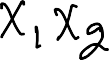 X₁X₂